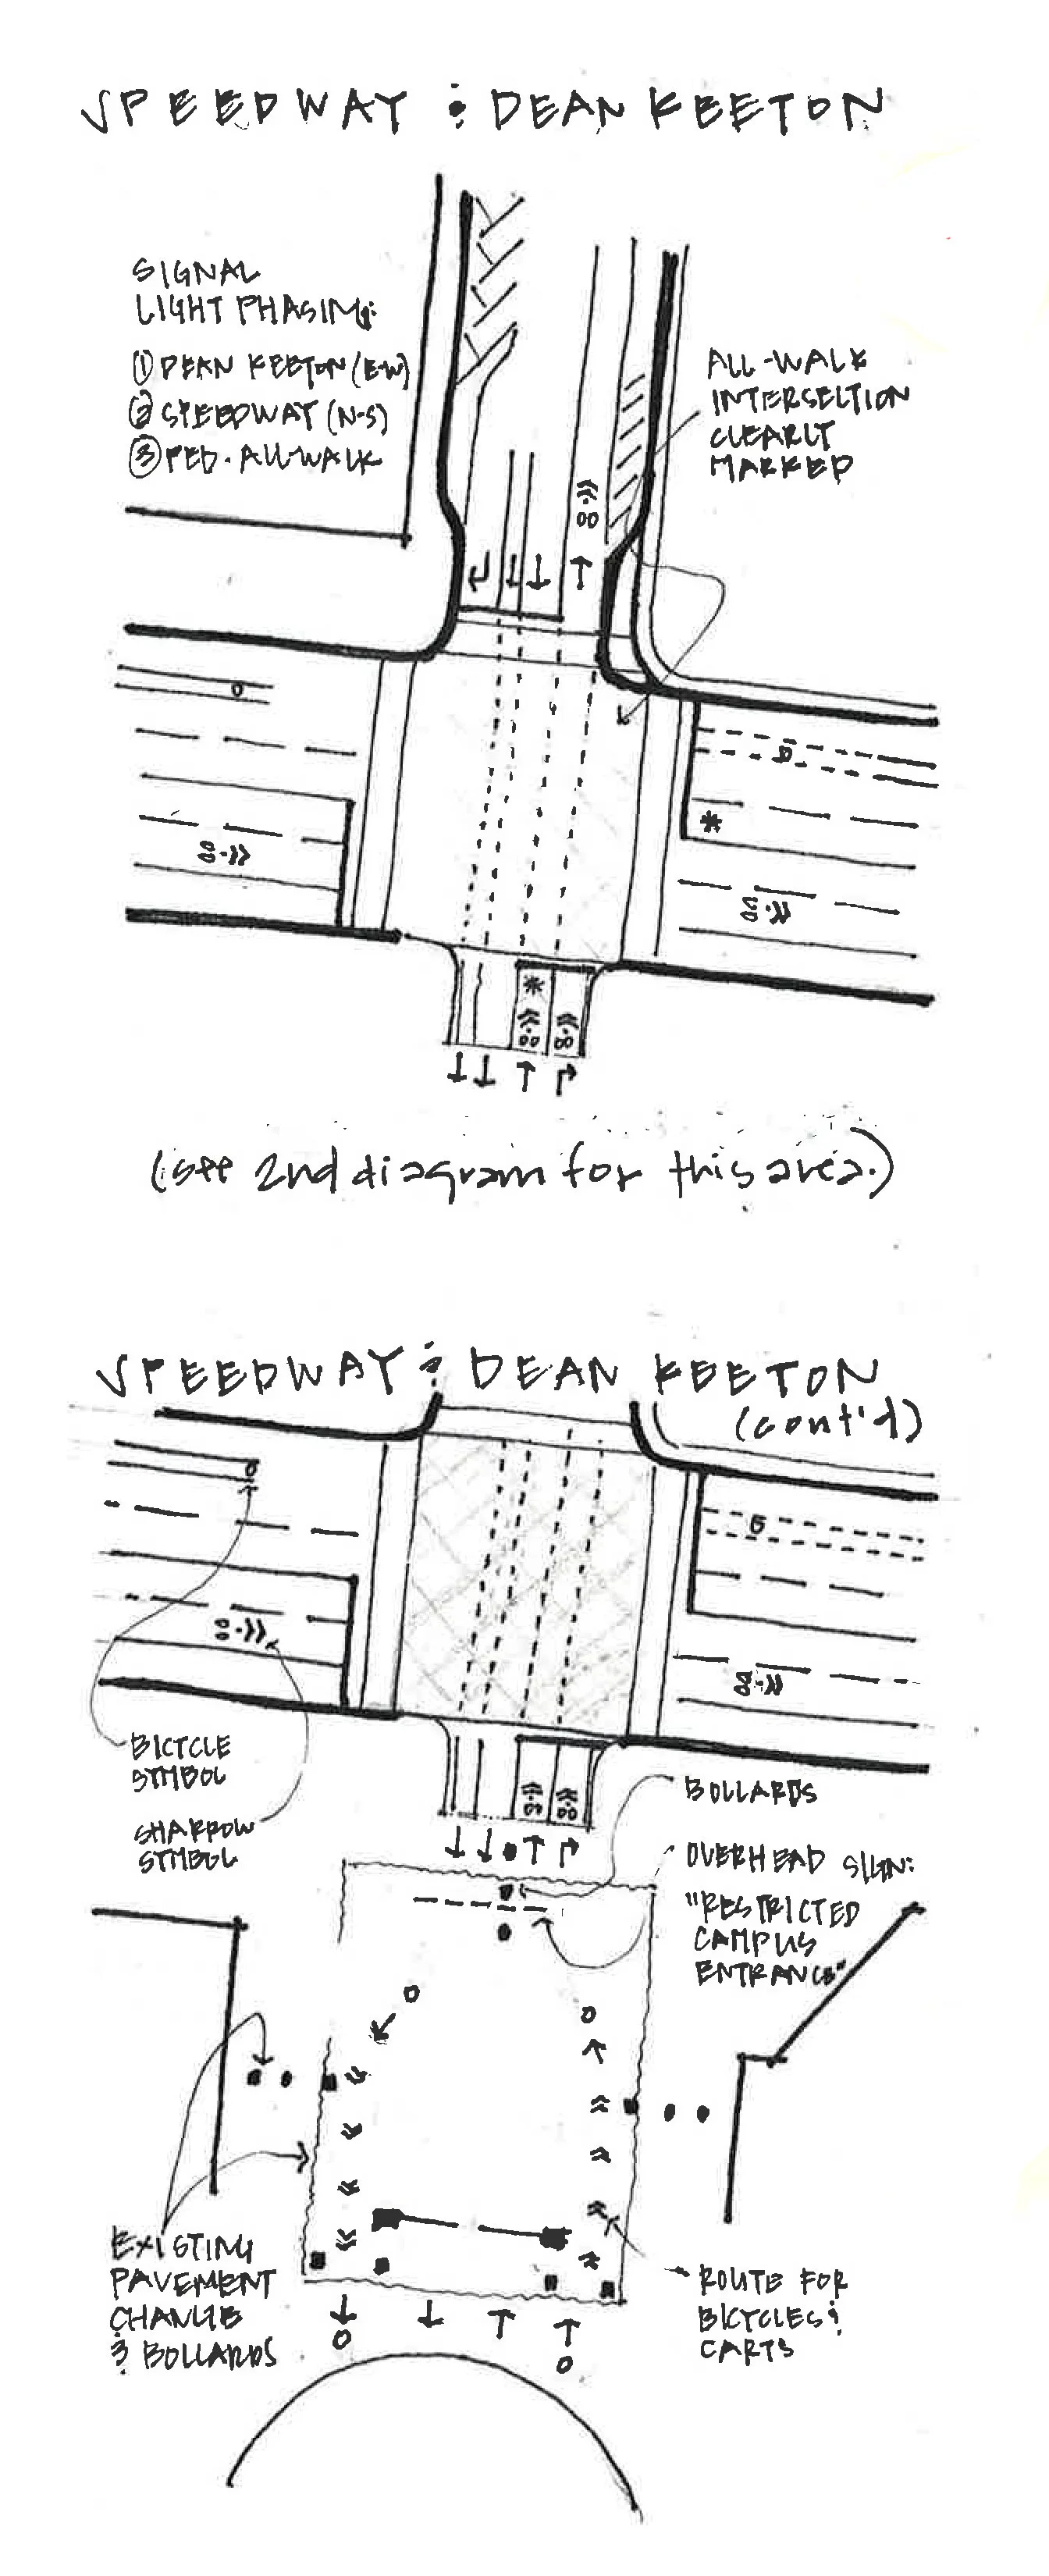 SPEEDWAY & DEAN KEETON
SIGNAL
LIGHT PHASING:
① DEAN KEETON (E-W)
② SPEEDWAY (N-S)
③ PED. ALL-WALK
ALL-WALK
INTERSECTION
CLEARLY
MARKED
(see 2nd diagram for this area.)
SPEEDWAY & DEAN KEETON
(cont'd)
BICYCLE
SYMBOL
SHARROW
SYMBOL
BOLLARDS
OVERHEAD SIGN:
"RESTRICTED
CAMPUS
ENTRANCE"
EXISTING
PAVEMENT
CHANGE
& BOLLARDS
ROUTE FOR
BICYCLES &
CARTS